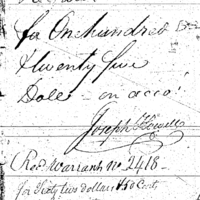 for One hundred
& twenty five
Dolls - on acco.t
Joseph Howell
Rec. Warrant No. 2418.
for Sixty two dollars & 50 Cents